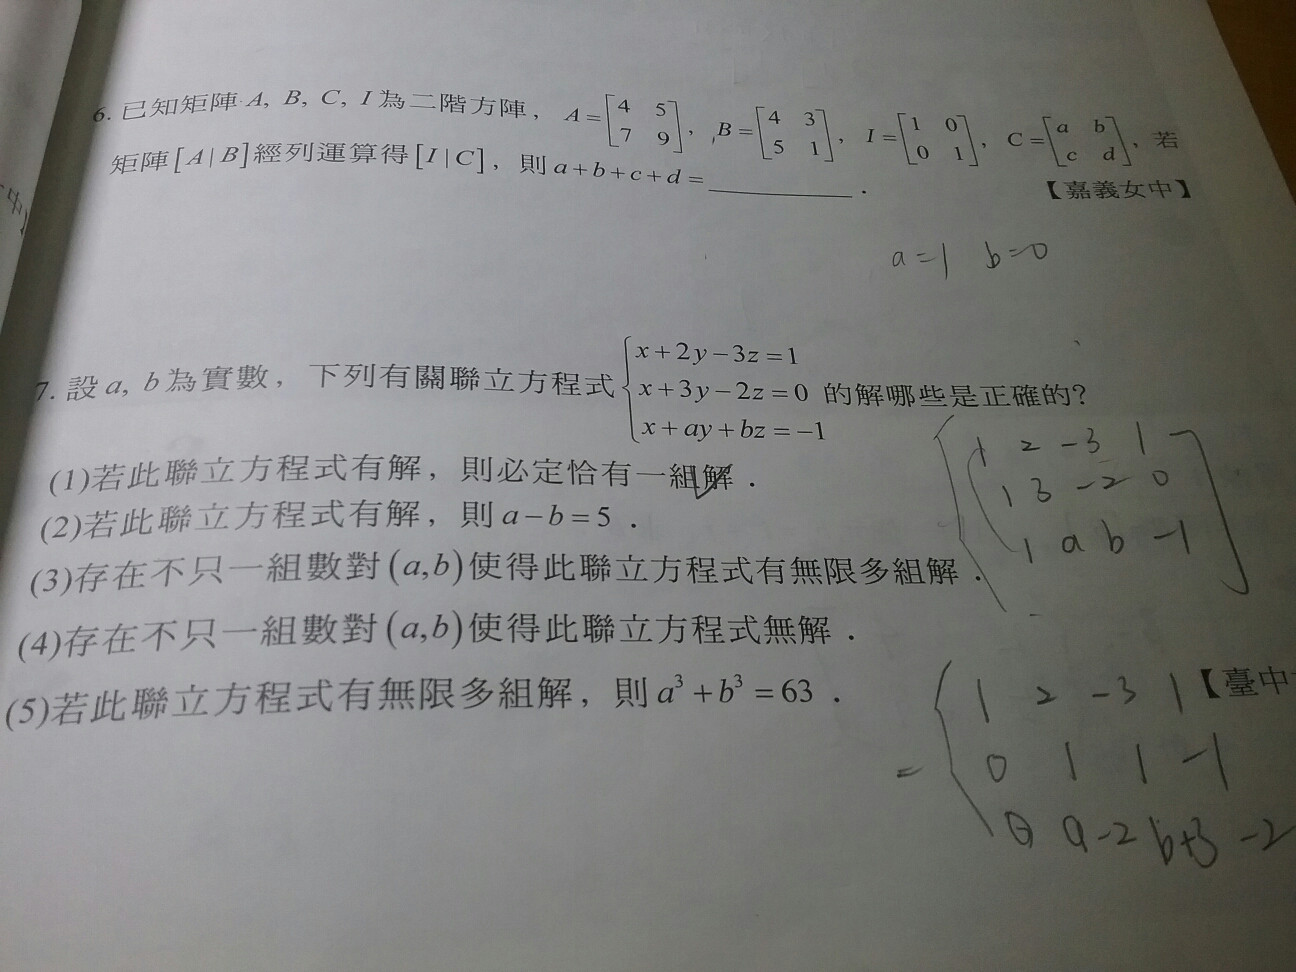 6. 已知矩陣 A, B, C, I 為二階方陣, A=[4 5 7 9], B=[4 3 5 1], I=[1 0 0 1], C=[a b c d], 若
矩陣[A|B]經列運算得[I|C], 則 a+b+c+d=________.
【嘉義女中】
a=1 b=0
7. 設a, b為實數, 下列有關聯立方程式 { x+2y-3z=1
x+3y-2z=0 的解哪些是正確的?
x+ay+bz=-1
(1)若此聯立方程式有解, 則必定恰有一組解.
(2)若此聯立方程式有解, 則a-b=5.
(3)存在不只一組數對(a,b)使得此聯立方程式有無限多組解.
(4)存在不只一組數對(a,b)使得此聯立方程式無解.
(5)若此聯立方程式有無限多組解, 則a³+b³=63.
【臺中
1 2 -3 1
1 3 -2 0
1 a b -1
1 2 -3 1
= 0 1 1 -1
0 a-2 b+3 -2